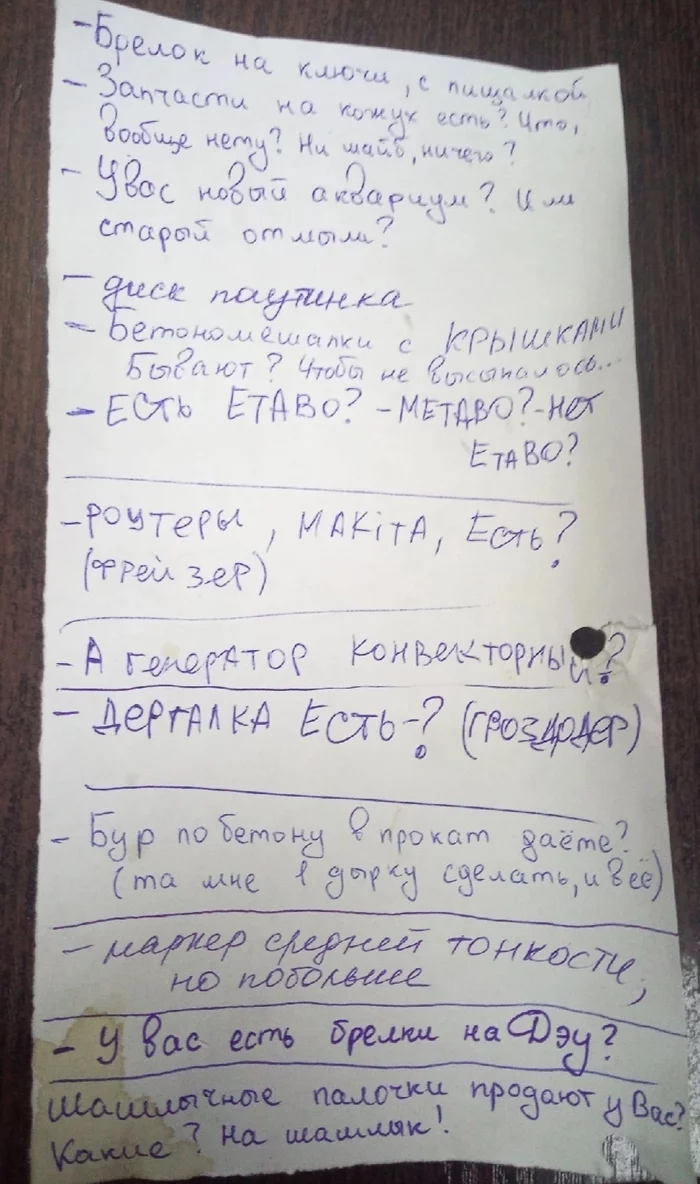 - Брелок на ключи, с пищалкой
- Запчасти на кожух есть? Что,
вообще нету? Ни шайб, ничего?
- У вас новый аквариум? Или
старый отмыли?
- диск паутинка
- Бетономешалки с КРЫШКАМИ
Бывают? Чтобы не высыпалось...
- ЕСТЬ ЕТАВО? - МЕТАВО? - Нет
ЕТАВО?
- РОУТЕРЫ, МАКiТА, ЕСТЬ?
(ФРЕЙЗЕР)
- А генератор конвекторный?
- ДЕРГАЛКА ЕСТЬ-? (ГВОЗДОДЕР)
- Бур по бетону в прокат даёте?
(та мне 1 дырку сделать, и всё)
- маркер средней тонкости,
но побольше
- У вас есть брелки на Дэу?
Шашлычные палочки продают у Вас?
Какие? На шашлык!